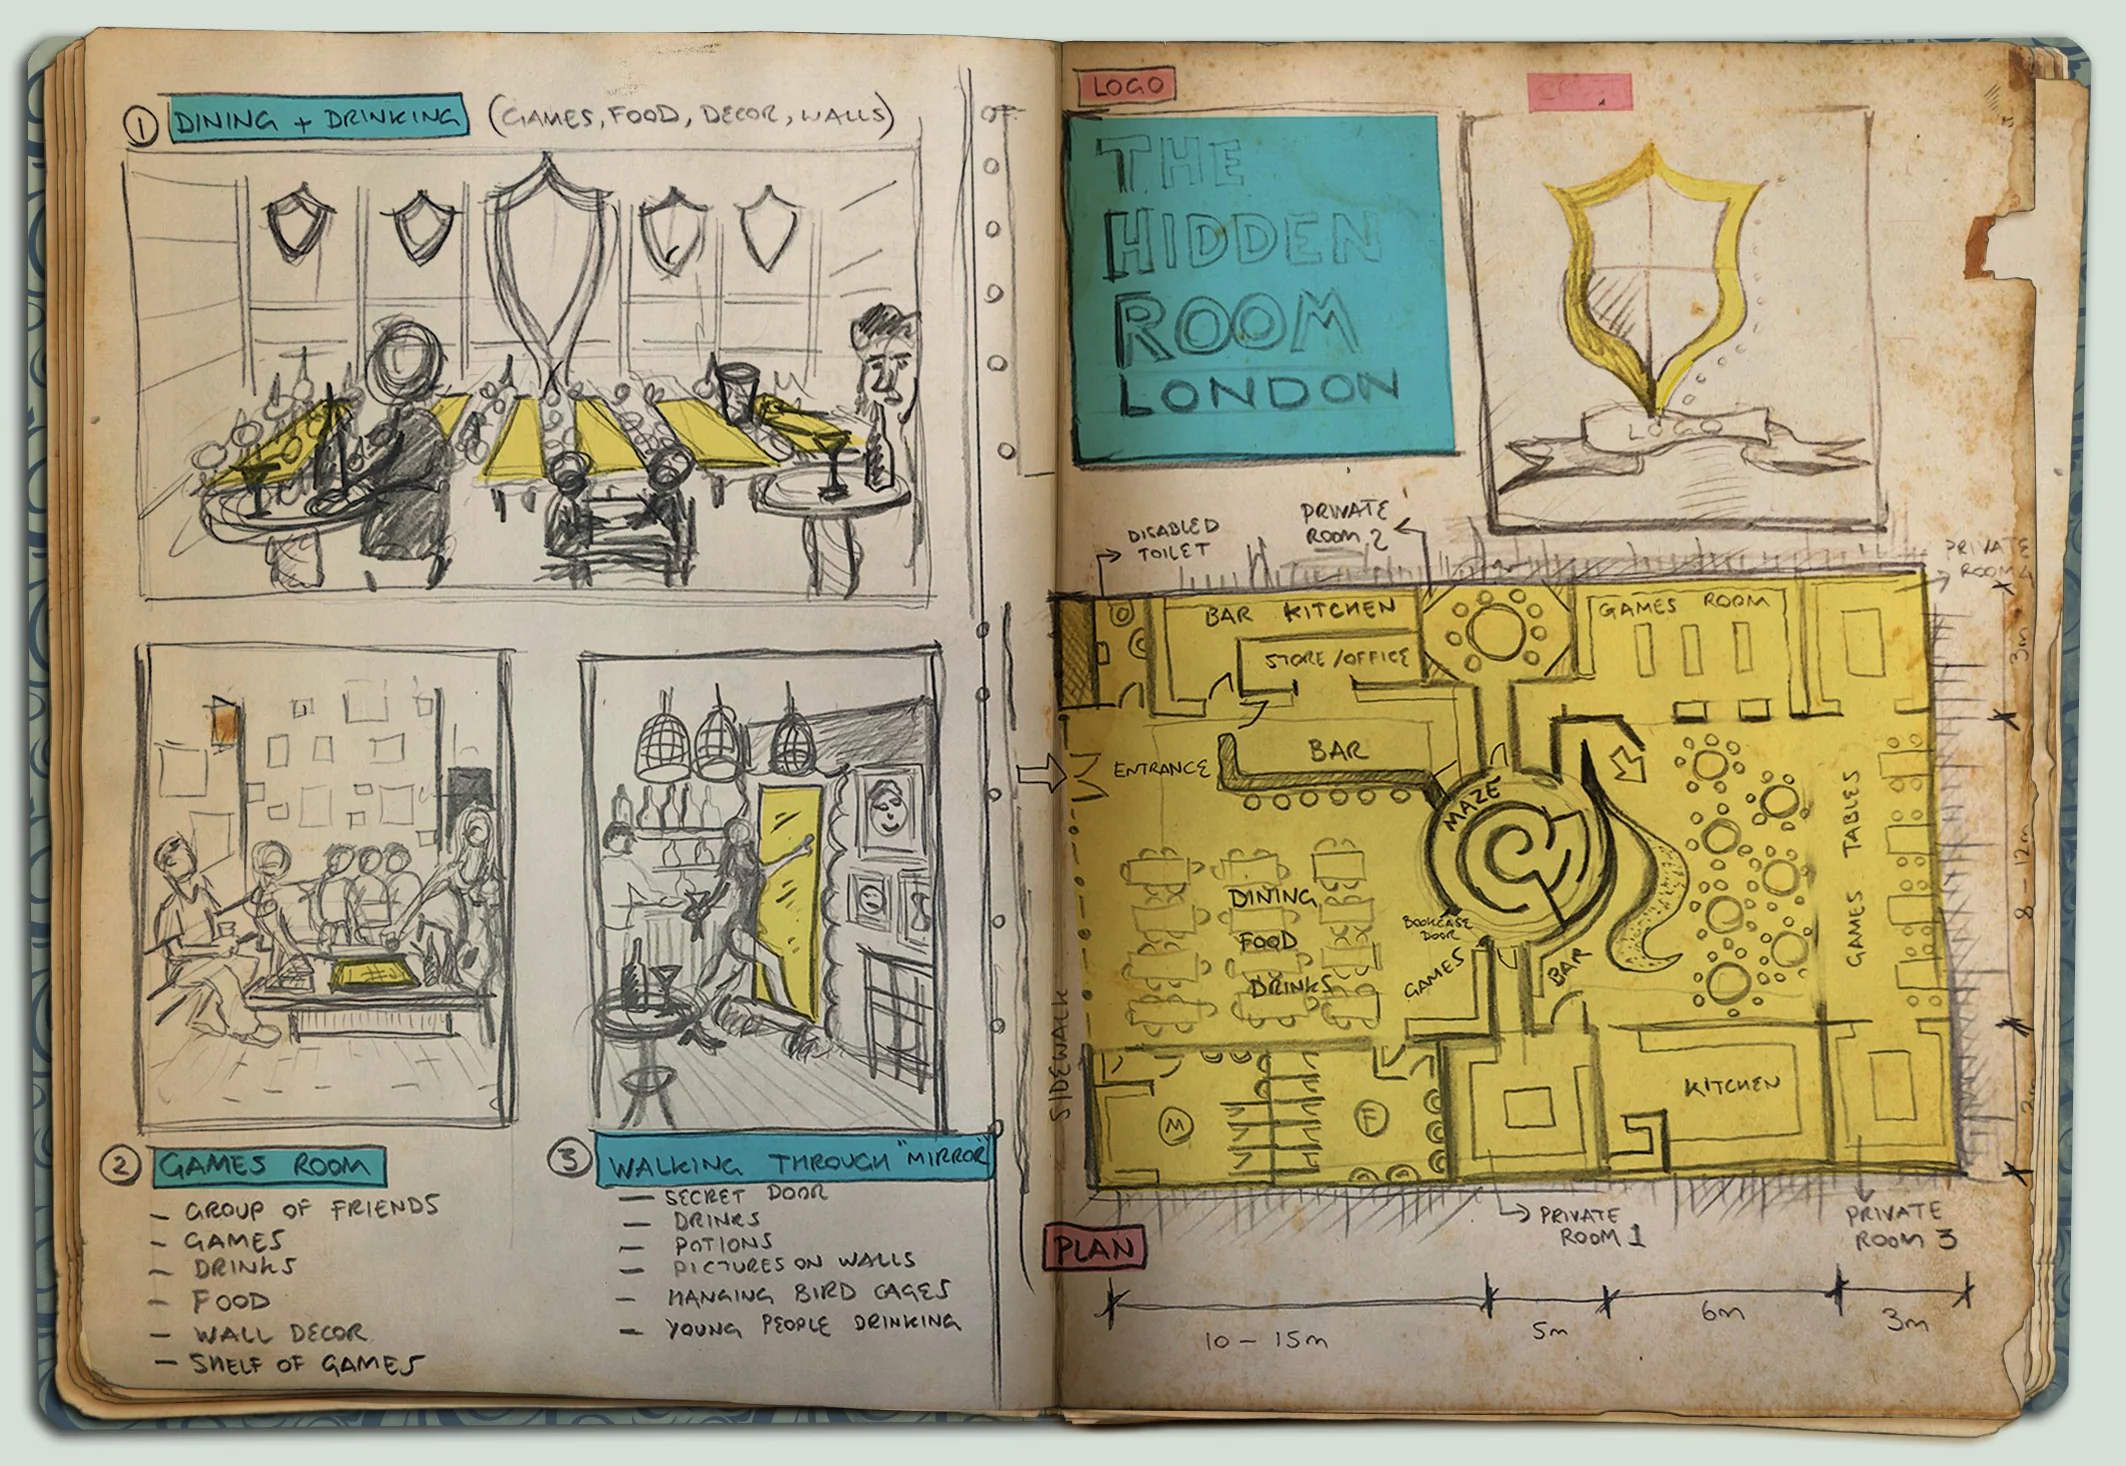 1 DINING + DRINKING (GAMES, FOOD, DECOR, WALLS)
2 GAMES ROOM
— GROUP OF FRIENDS
— GAMES
— DRINKS
— FOOD
— WALL DECOR
— SHELF OF GAMES
3 WALKING THROUGH "MIRROR"
— SECRET DOOR
— DRINKS
— POTIONS
— PICTURES ON WALLS
— HANGING BIRD CAGES
— YOUNG PEOPLE DRINKING
LOGO
THE
HIDDEN
ROOM
LONDON
LOGO
DISABLED
TOILET
PRIVATE
ROOM 2
PRIVATE
ROOM 4
BAR KITCHEN
STORE/OFFICE
GAMES ROOM
BAR
ENTRANCE
MAZE
DINING
FOOD
DRINKS
BOOKCASE
DOOR
GAMES
BAR
GAMES TABLES
SIDEWALK
M
F
KITCHEN
3m
8-12m
PLAN
PRIVATE
ROOM 1
PRIVATE
ROOM 3
10 - 15m
5m
6m
3m